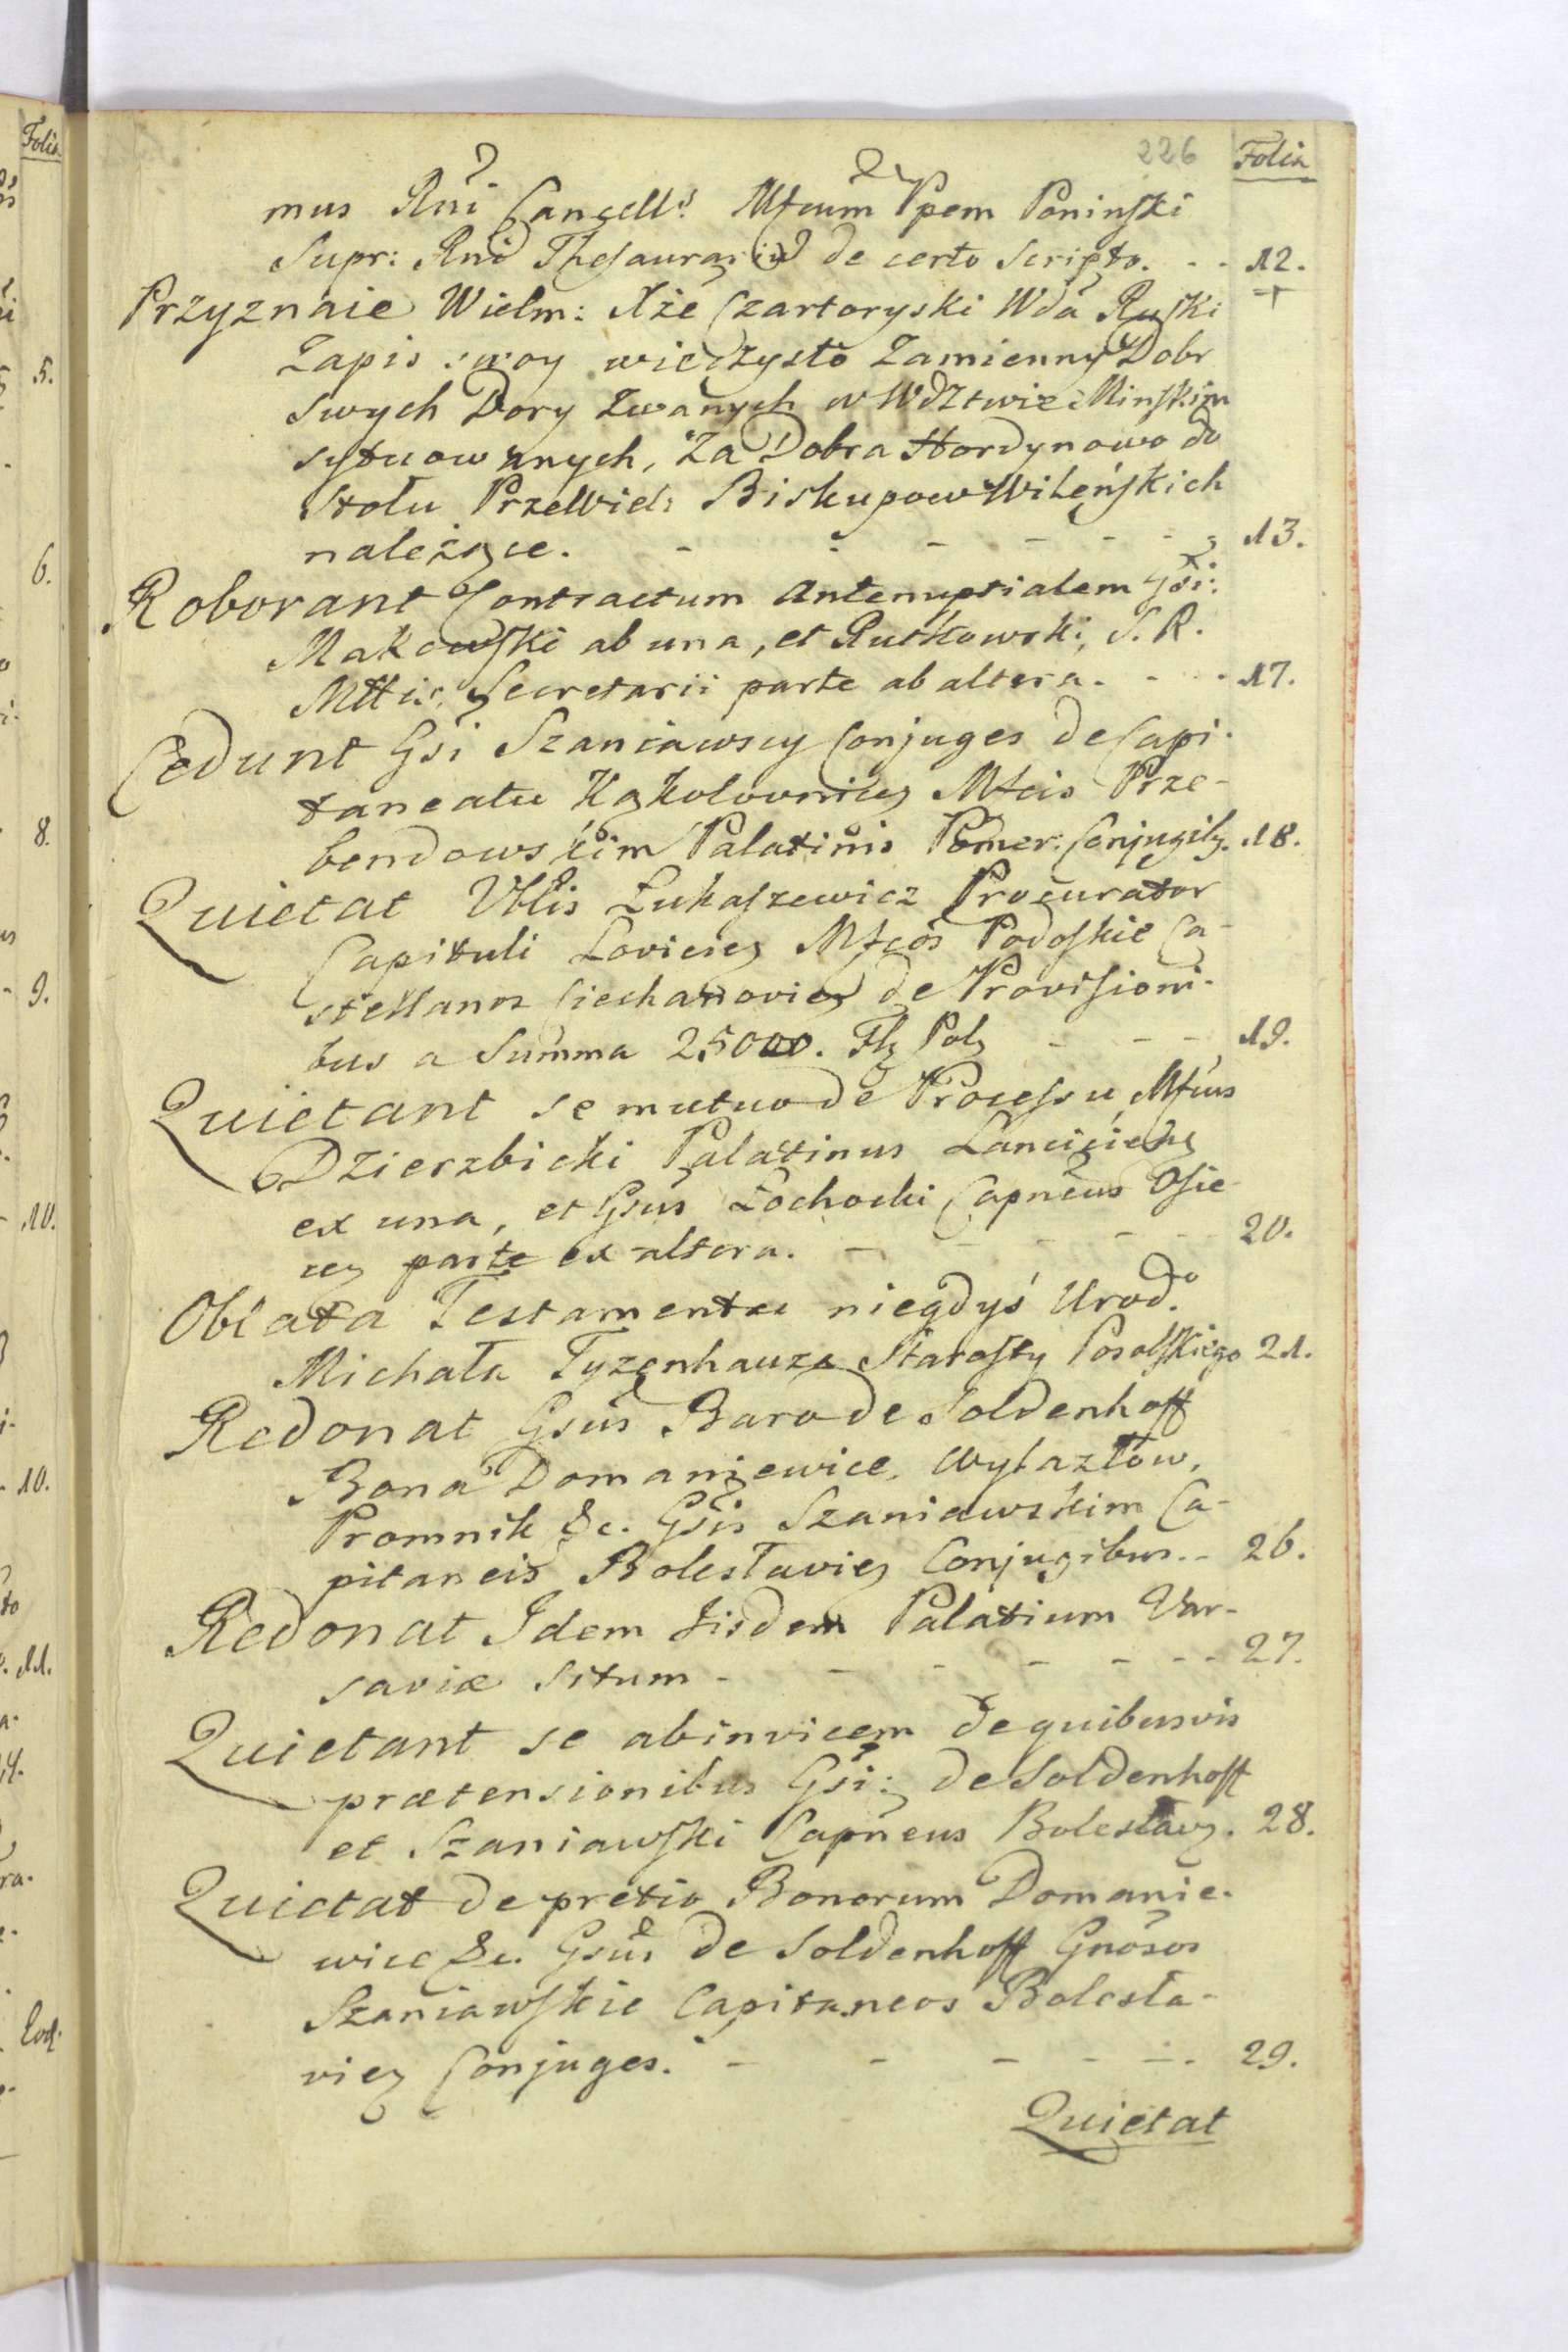 226 Folia
mus Rni Cancell: Mfcum Ppem Poninski
Supr: Rni Thesaurarium de certo scripto. - - 12.
Przyznaie Wielm: Xże Czartoryski Wda Ruski
Zapis swoy wieczysto Zamienny Dobr
swych Dory Zwanych w Wdztwie Minskim
sytuowanych, Za Dobra Hordynowo do
Stołu Przewiel: Biskupow Wileńskich
należące. - - - - - - 13.
Roborant Contractum Antenuptialem Gsi:
Makowski ab una, et Rutkowski, S. R.
Mttis Secretarii parte ab altera. - - - 17.
Cedunt Gsi Szaniawscy Conjuges de Capi-
taneatu Kąkolovnicz Mfcis Prze-
bendowskim Palatinis Pomer: Conjugibz. 18.
Quietat Vblis Łukaszewicz Procurator
Capituli Lovicicz Mfcos Podoskie Ca-
stellanos Ciechanovicz de Provisioni-
bus a Summa 25000. Flz Polz - - - 19.
Quietant se mutuo de Processu Mfcus
Dzierzbicki Palatinus Lanciciens
ex una, et Gsus Łochocki Capneus Osie-
cz parte ex altera. - - - - - 20.
Oblata Testamentu niegdyś Urod:
Michała Tyzenhauza Starosty Posolskiego 21.
Redonat Gsus Baro de Soldenhoff
Bona Domaniewice, Wyłazłow,
Promnik &c. Gsis Szaniawskim Ca-
pitaneis Bolesłavicz Conjugibus. - 26.
Redonat Idem Iisdem Palatium Var-
saviæ situm - - - - - - 27.
Quietant se abinvicem de quibusvis
prætensionibus Gsi: de Soldenhoff
et Szaniawski Capneus Bolesłavz. 28.
Quietat de pretio Bonorum Domanie-
wice &c. Gsus de Soldenhoff Gnosos
Szaniawskie Capitaneos Bolesła-
vicz Conjuges. - - - - - 29.
Quietat